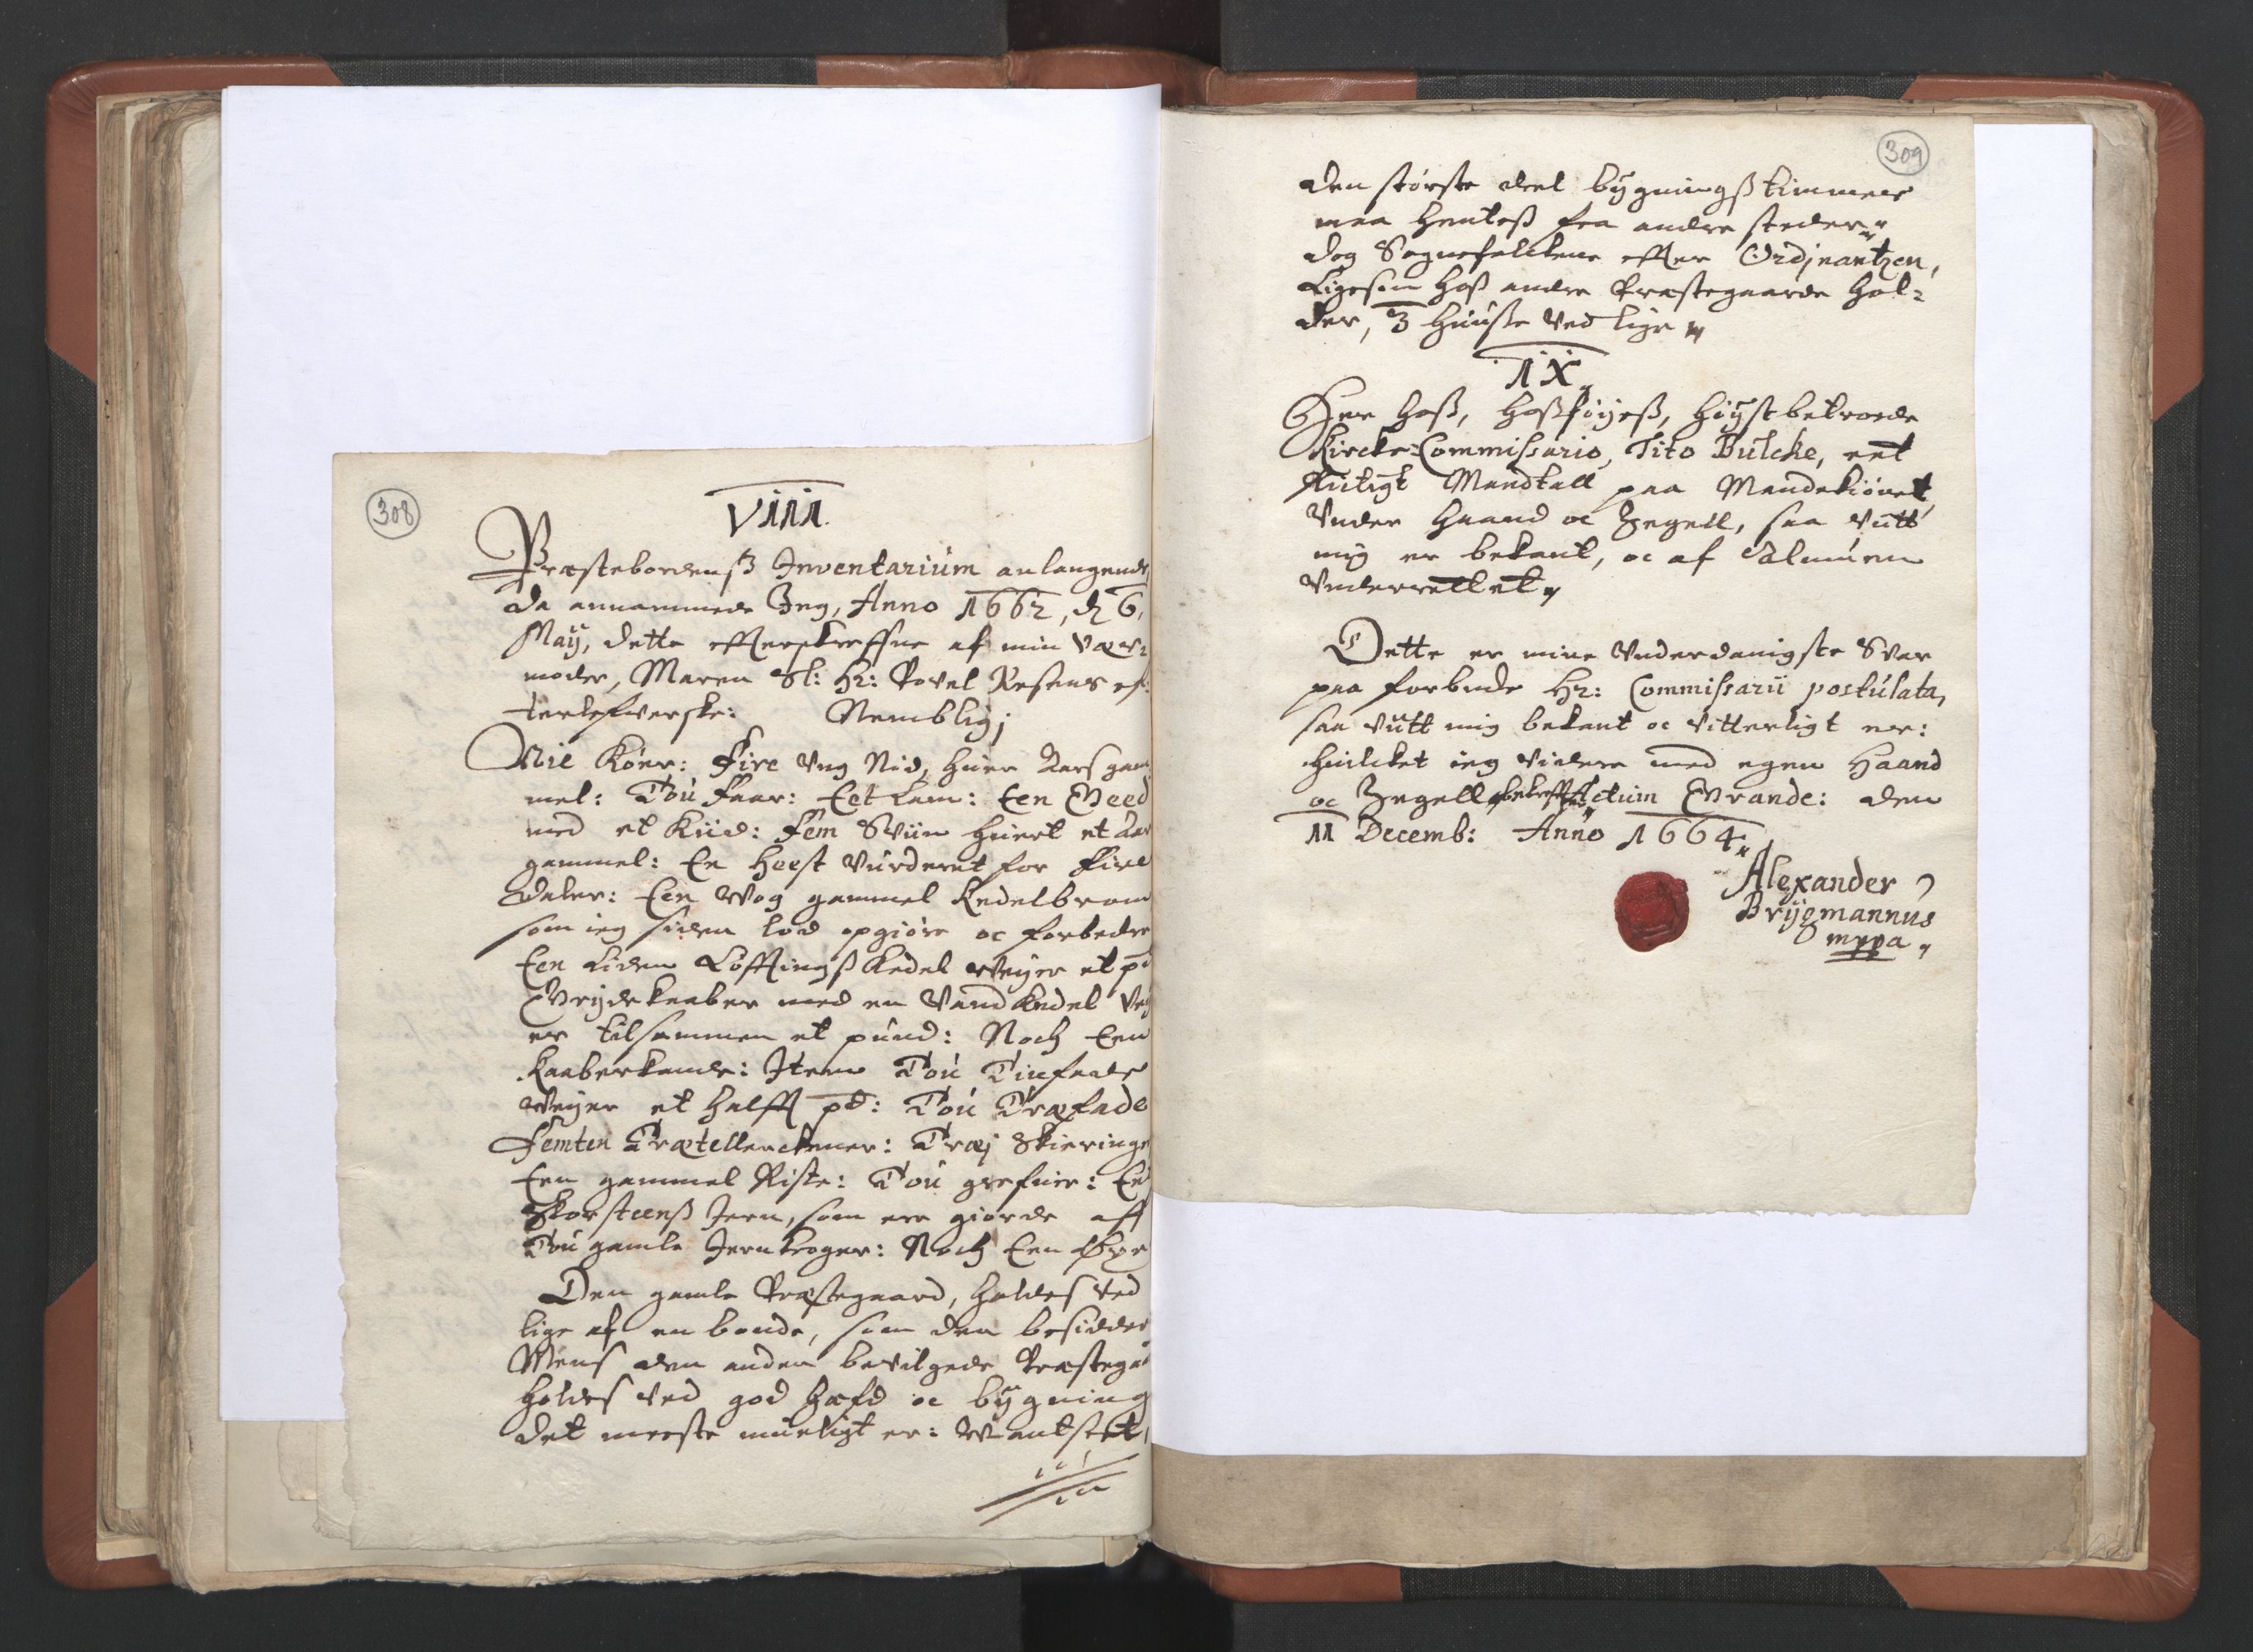 308
VIII.
Præstebordenß Inventarium anlangende
da annammede Ieg, Anno 1662, d 6,
May, dette efferskreffne af min Vær-
moder, Maren Sl: Hr: Povel Resens ef-
terlefwerske: Nemblig;
Nie Køer: Fire Ung Nød, huer Aars gam
mel: Tou Faar: Eet Lam: Een Geed
med et Kiid: Fem Sviin huert et Aar
gammel: En Heest Vurderet for Fire
Daler: Een Wog gammel Kedelbrom
som ieg siden lod opgiøre oc forbedre
Een liden Løffings Kedel Veyer et pd
Grydekaaber med en Vandkedel Vey
er tilsammen et pund: Noch Een
Kaaberkande: Item Tou Tinfade
Veyer et halfft pd: Tou Træfade
Femten Trætellerckener: Træj Skieringe
Een gammel Riste: Tou grefuer: Et
Skorsteenß Jern, som ere giorde aff
Tou gamle Jernkroger: Noch Een Øxe
Den gamle Præstegaard, holdes ved
lige af en bonde, som den besidder
Mens den anden bevilgede Præstegaa
holdes ved god hæfd oc bygning
det meeste mueligt er: Vantseet,
309
den største deel bygningß timmer
maa hentess fra andre steder
dog Sognefolckene effter Ordjnantzen,
Ligesom hoß andre Præstegaarde hol-
der, 3 huuse ved lige
IX.
Her hoß, hoßføyeß, høystbetroede
Kircke-Commissario, Tito Bulche, eet
Rictigt Mandtall paa Mandekiønet,
Under Haand oc Zegell, saa vitt
mig er bekant, oc af Almuen
Underrettet
Dette er mine Underdanigste Svar
paa forbede Hr: Commissarii postulata,
saa vitt mig bekant oc vitterligt er:
huilcket ieg videre med egen Haand
oc Zegell bekreffter Actum Grande: den
11 Decemb: Anno 1664
Alexander
Brygmannus
mppa